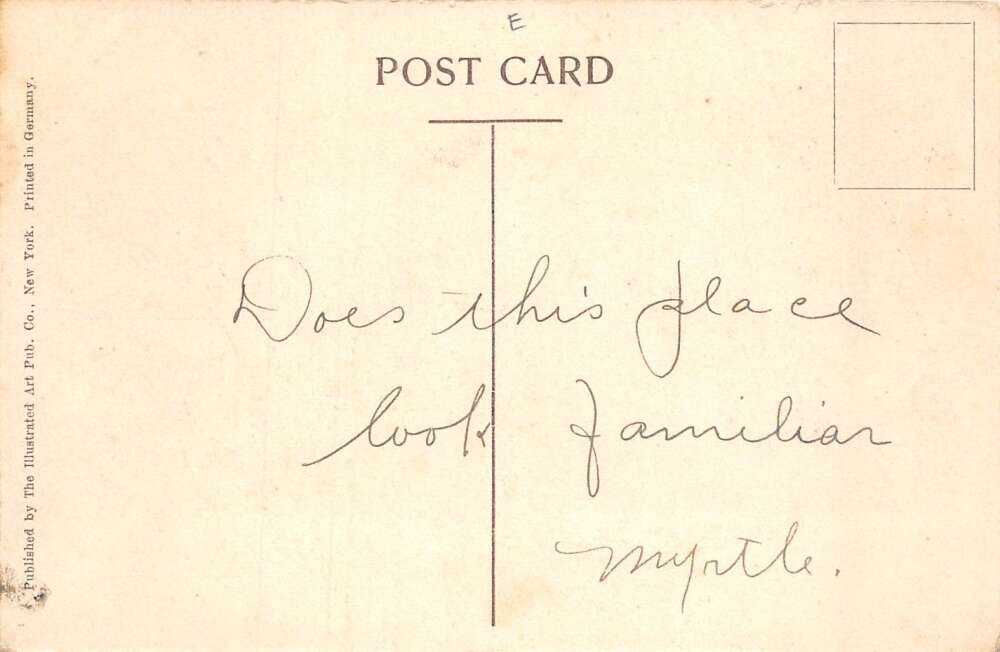 E
POST CARD
Published by The Illustrated Art Pub. Co., New York. Printed in Germany.
Does this place
look familiar
Myrtle.